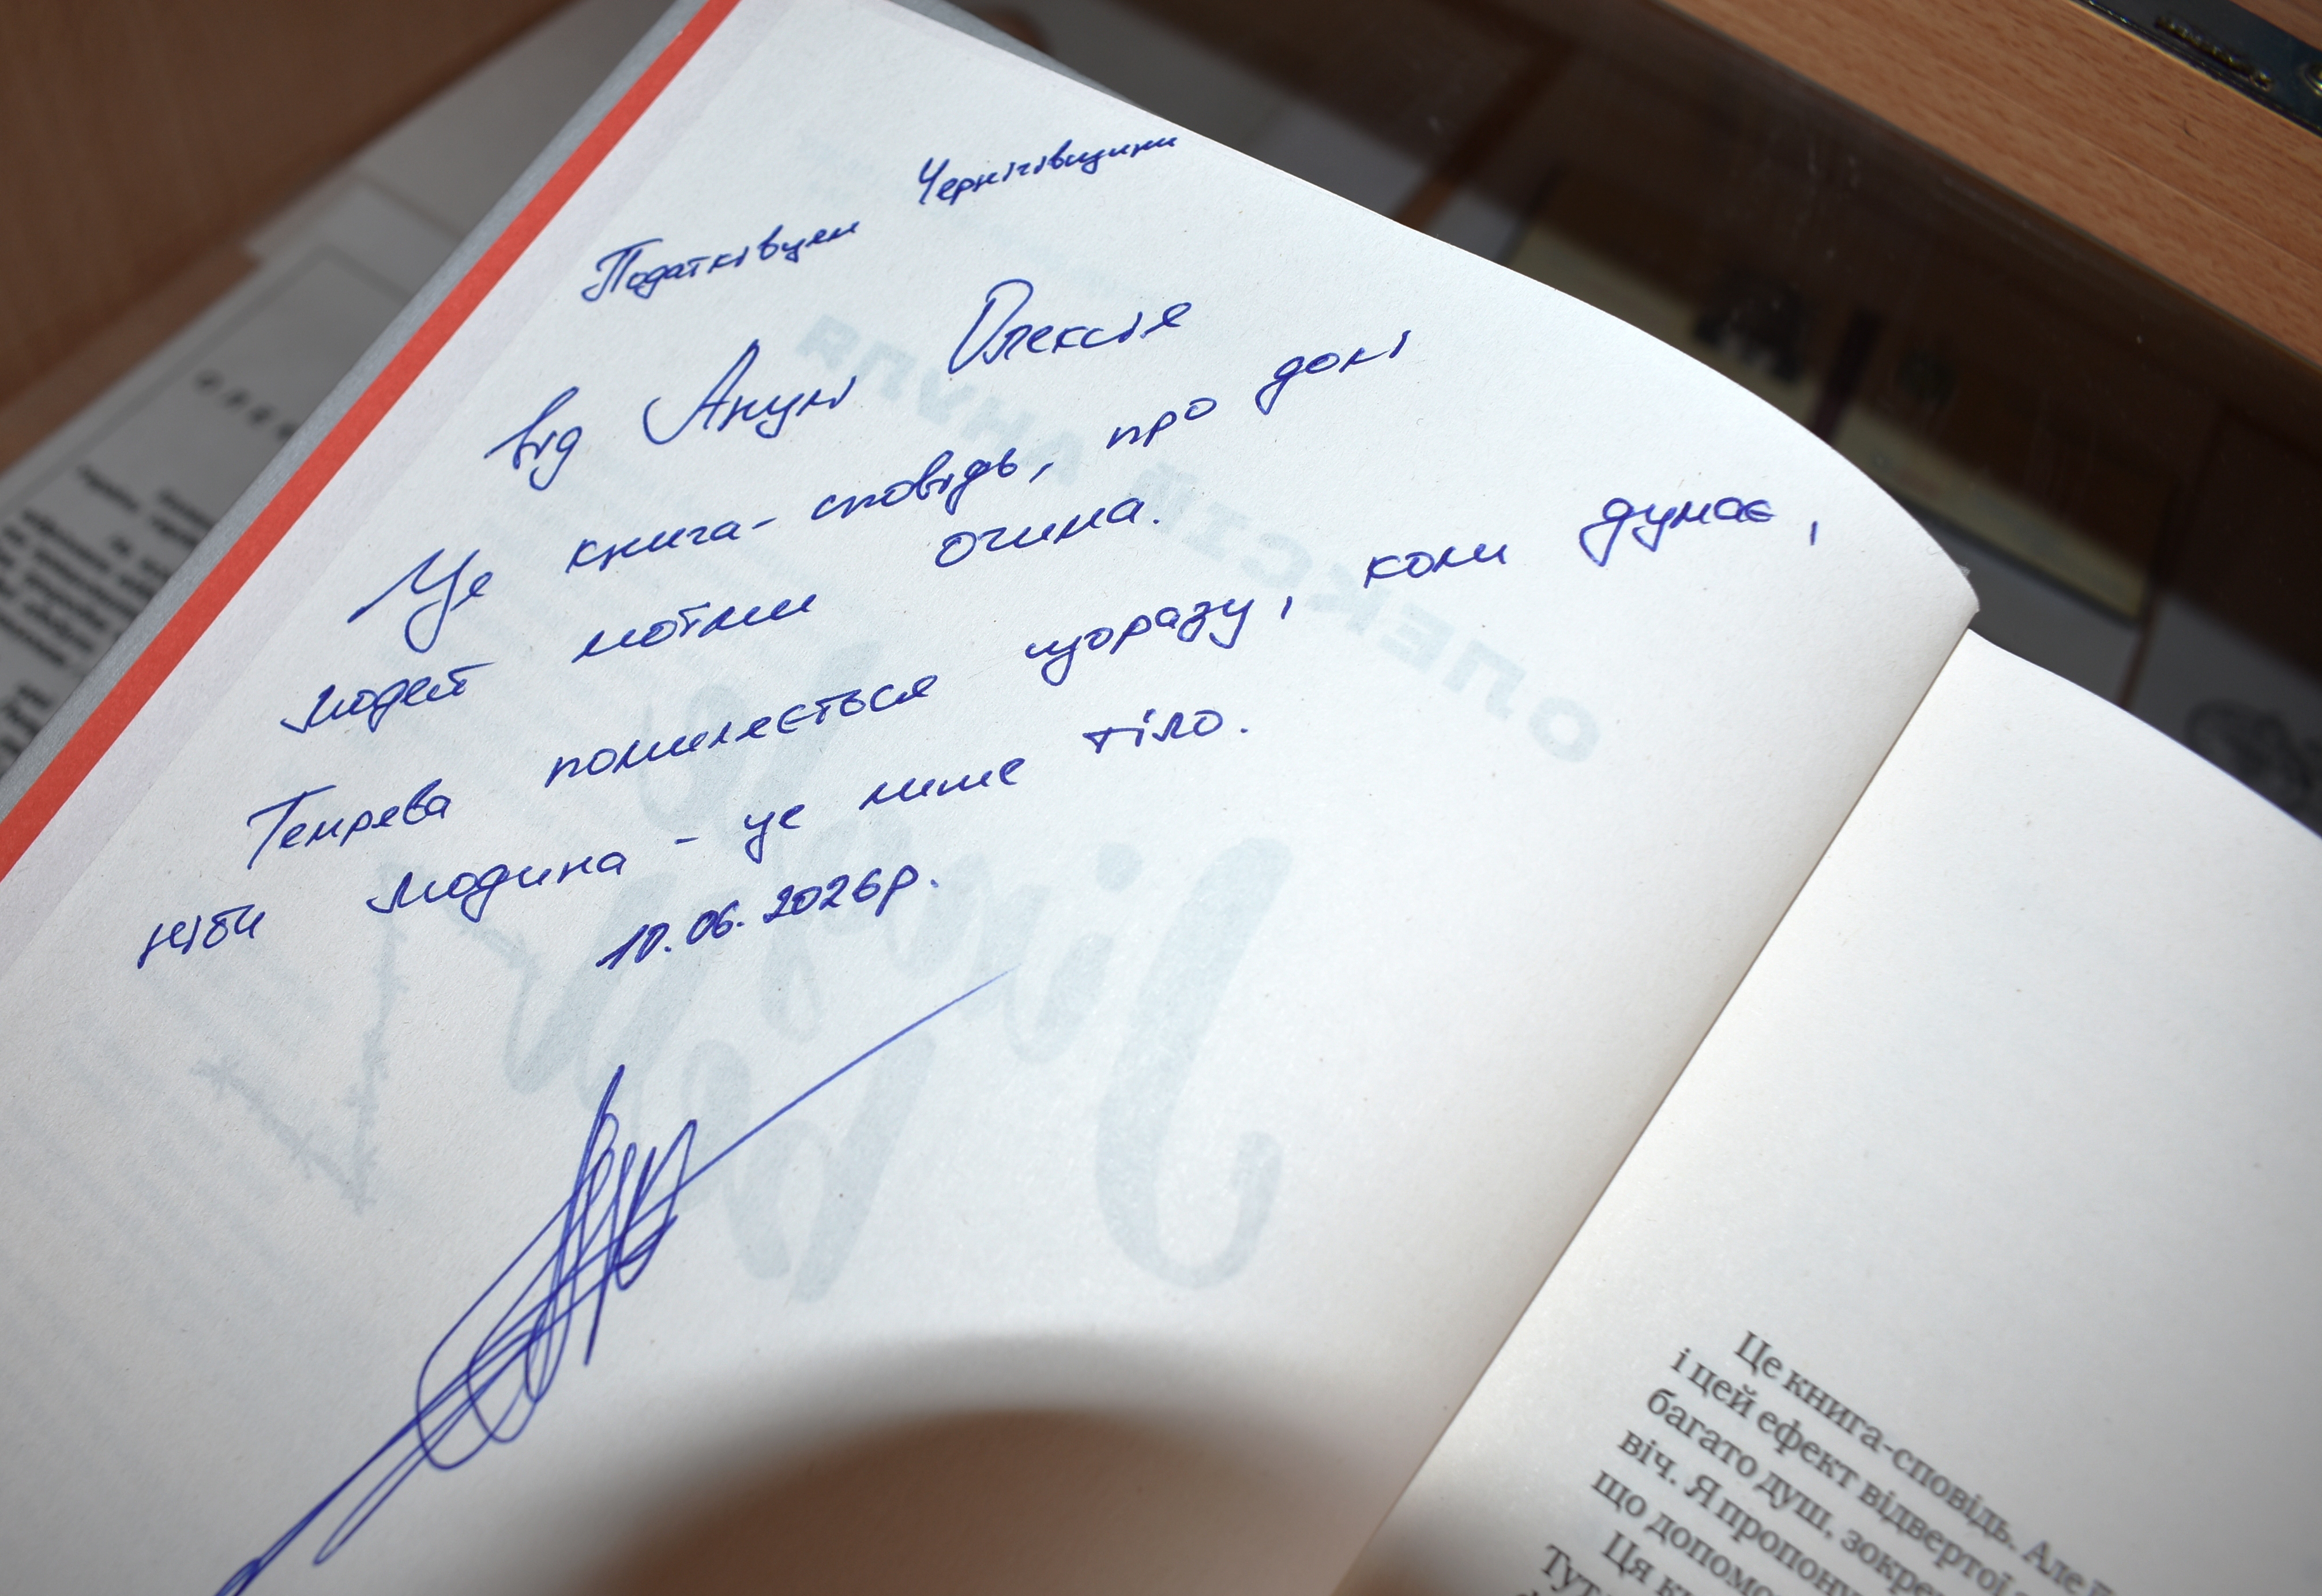 Податківцям Чернігівщини
від Анулі Олексія
Це книга-сповідь, про долі
людей моїми очима.
Темрева помиляється щоразу, коли думає,
ніби людина - це лише тіло.
10.06.2026р.
ОЛЕКСІЙ АНУЛЯ
Це книга-сповідь. Але
і цей ефект відвертої
багато душ, зокре
віч. Я пропону
що допомо
Ця кн
Тут